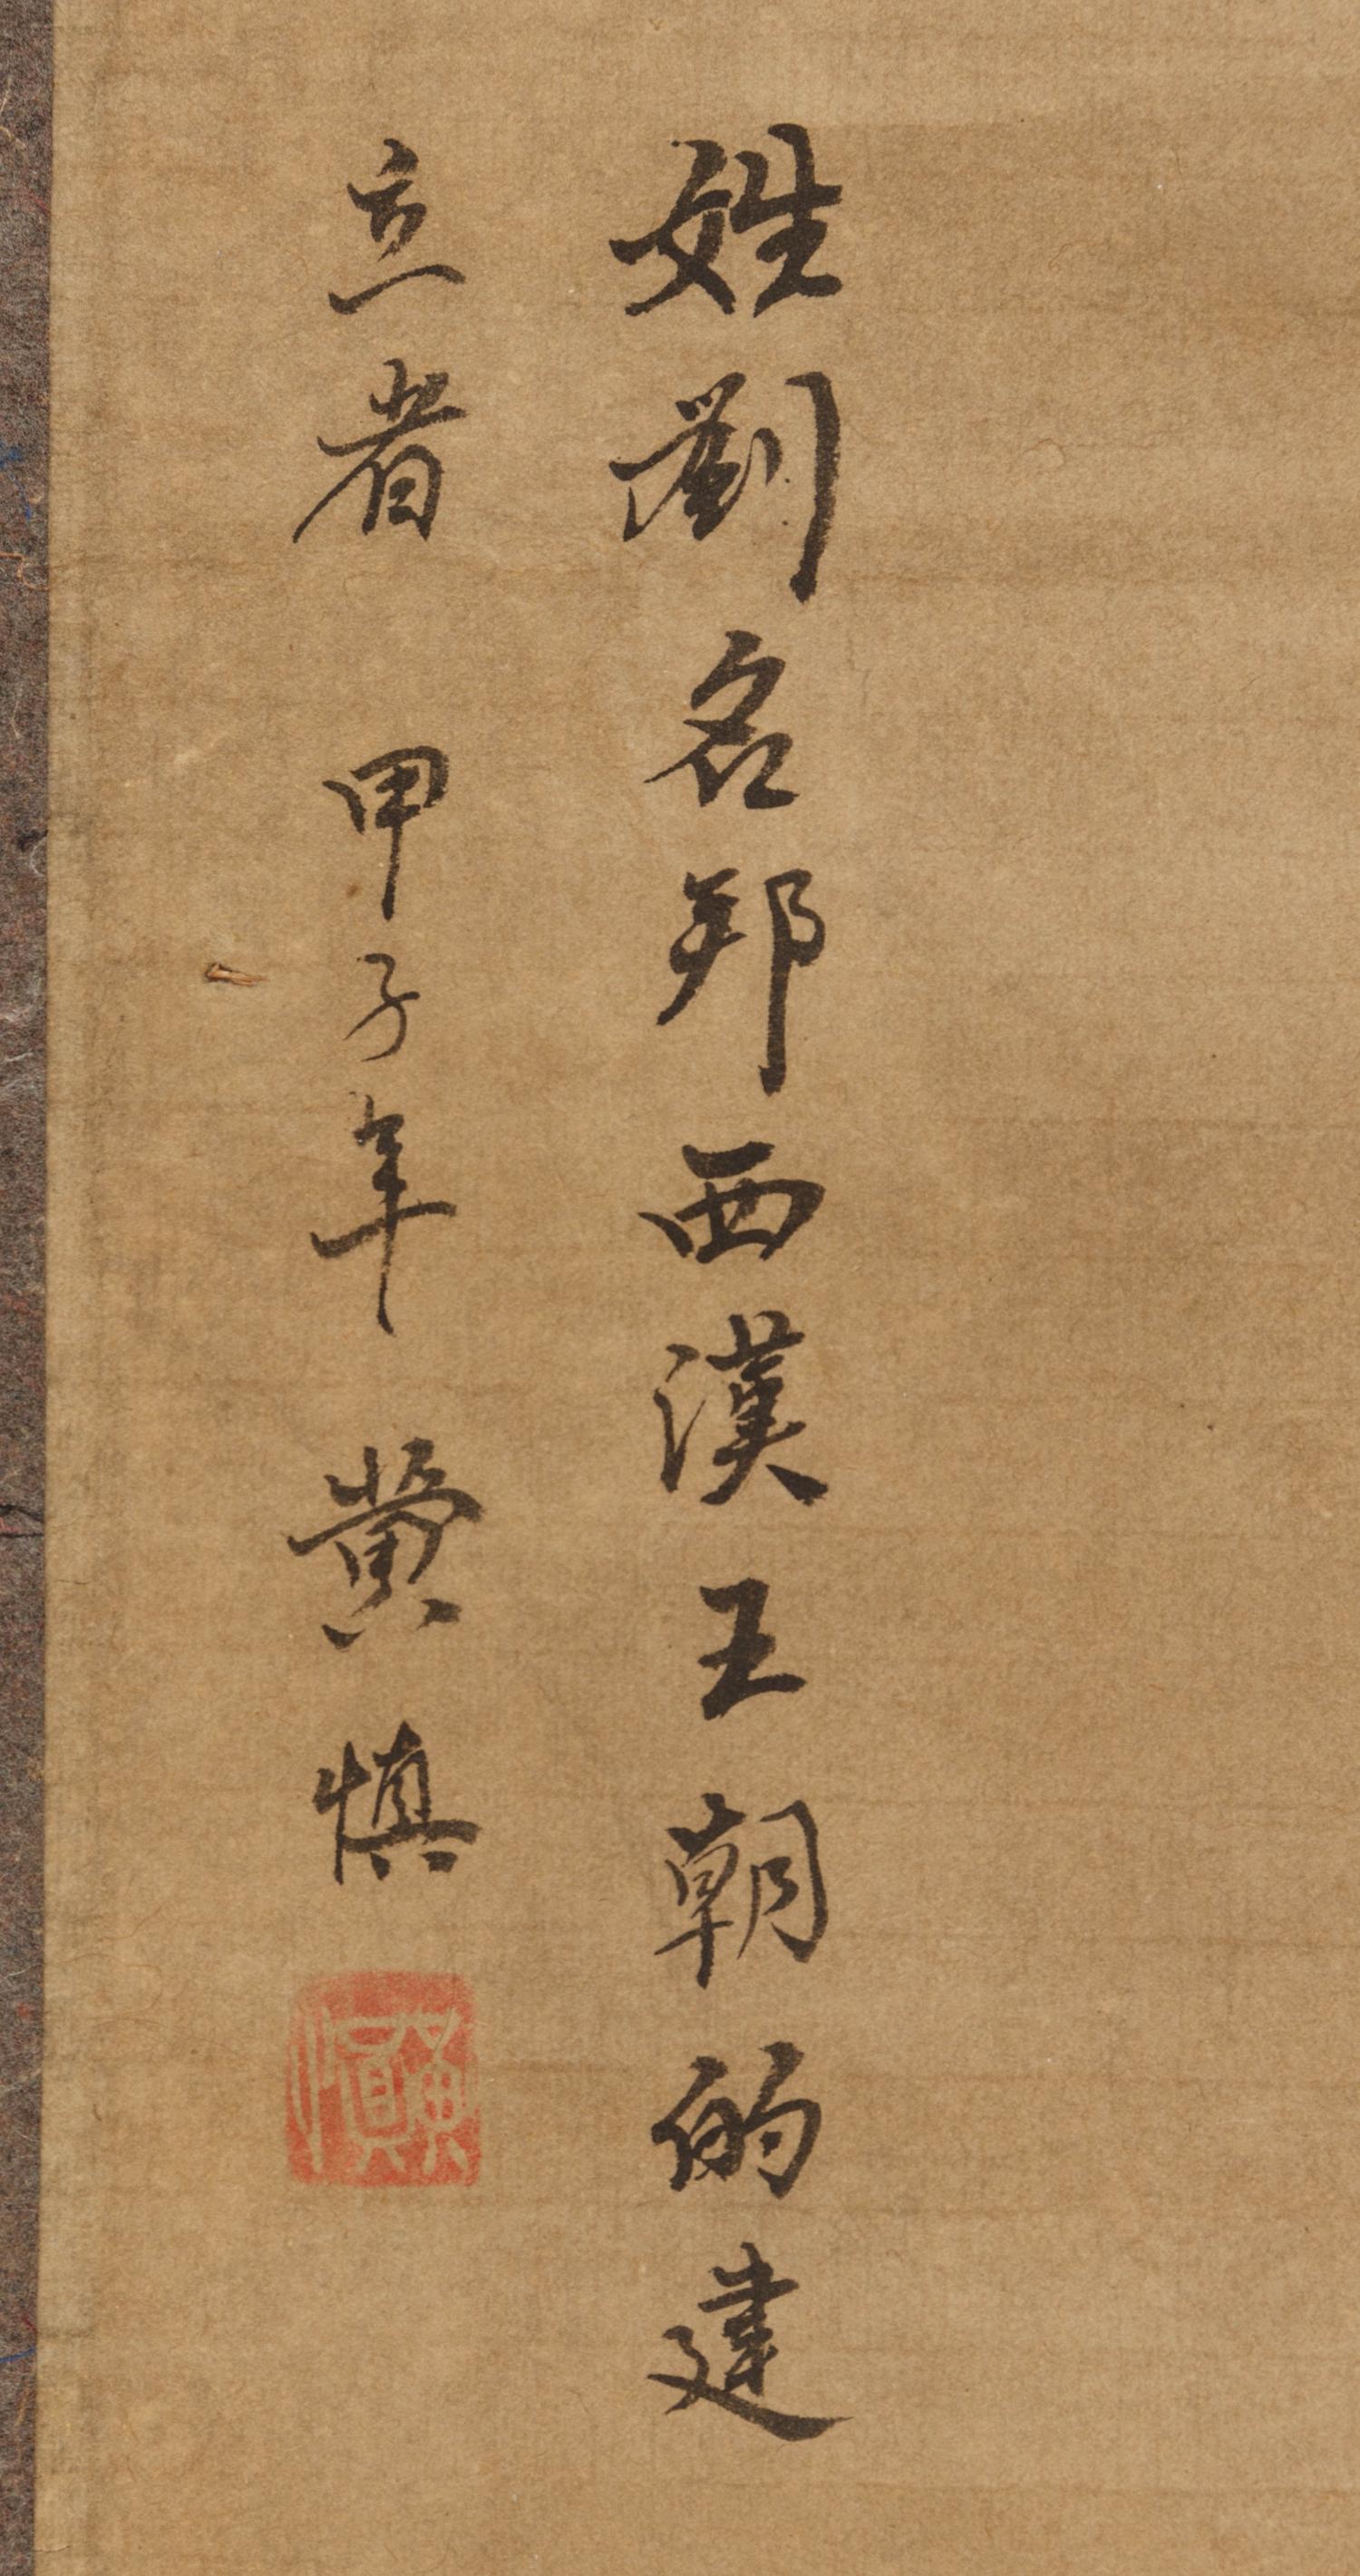 姓劉名邦西漢王朝的建
立者 甲子年 黄慎
黄慎